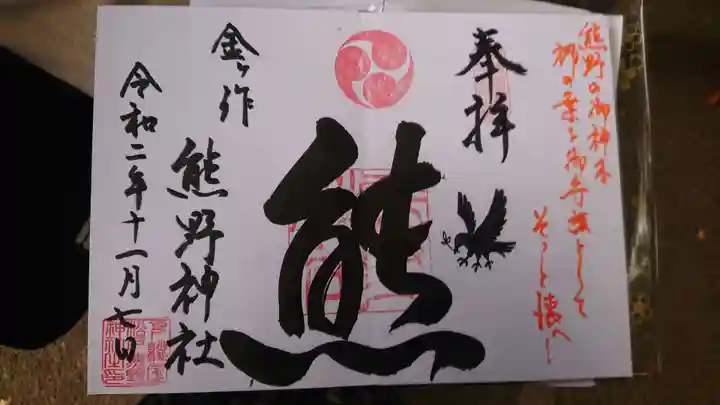 熊野の御神木
梛の葉を御守護として
そっと懐へ
奉拝
熊
金ケ作
熊野神社
令和二年十一月七日